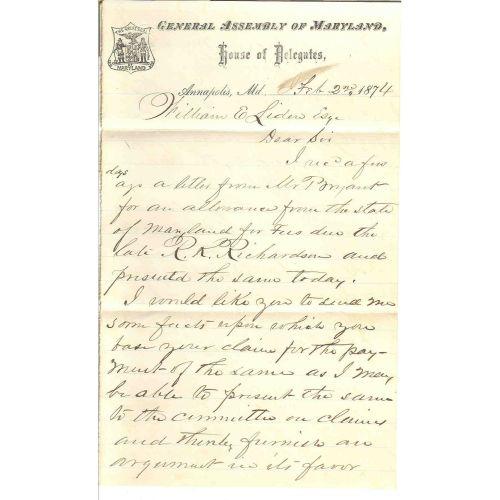 General Assembly of Maryland,
House of Delegates,
MARYLAND
Annapolis, Md. Feb 2nd, 1874
William E Liden Esqr
Dear Sir
I rec'd a few
days
ago a letter from Mr Bryant
for an allowance from the state
of Maryland for Fees due the
late R. K. Richardson and
presented the same today.
I would like you to send me
some facts upon which you
base your claim for the pay-
ment of the same as I may
be able to present the same
to the committee on claims
and thereby furnish an
argument in its favor